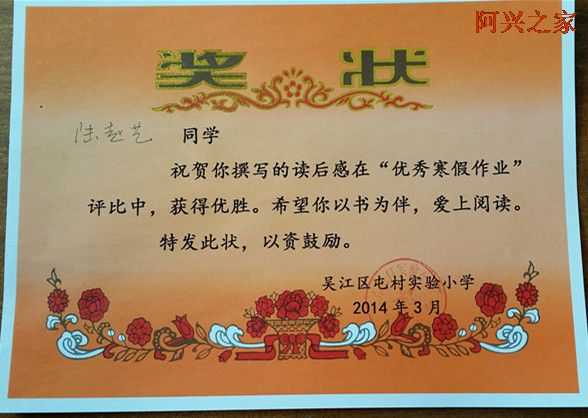 阿兴之家
奖状
陆越艺 同学
祝贺你撰写的读后感在“优秀寒假作业”
评比中，获得优胜。希望你以书为伴，爱上阅读。
特发此状，以资鼓励。
吴江区屯村实验小学
2014年3月